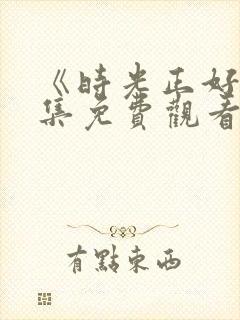 《時光正好
集免費觀看
有點東西